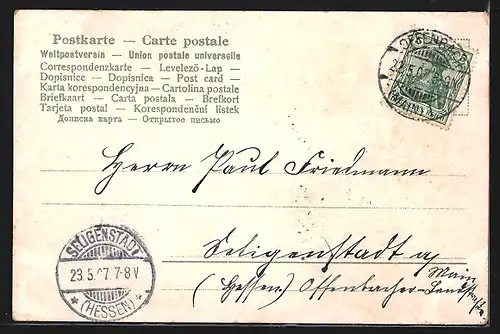 Postkarte — Carte postale
Weltpostverein — Union postale universelle
Correspondenzkarte — Levelező-Lap —
Dopisnice — Dopisnica — Post card —
Karta korespondencyjna — Cartolina postale
Briefkaart — Carta postala — Brefkort
Tarjeta postal — Korespondenční listek
Дописна карта — Открытое письмо
OFFENBACH
23.5.07
Herrn Paul Friedmann
Seligenstadt a/
Main
(Hessen) Offenbacher-Landstraße
SELIGENSTADT
23.5.07.7-8V
(HESSEN)